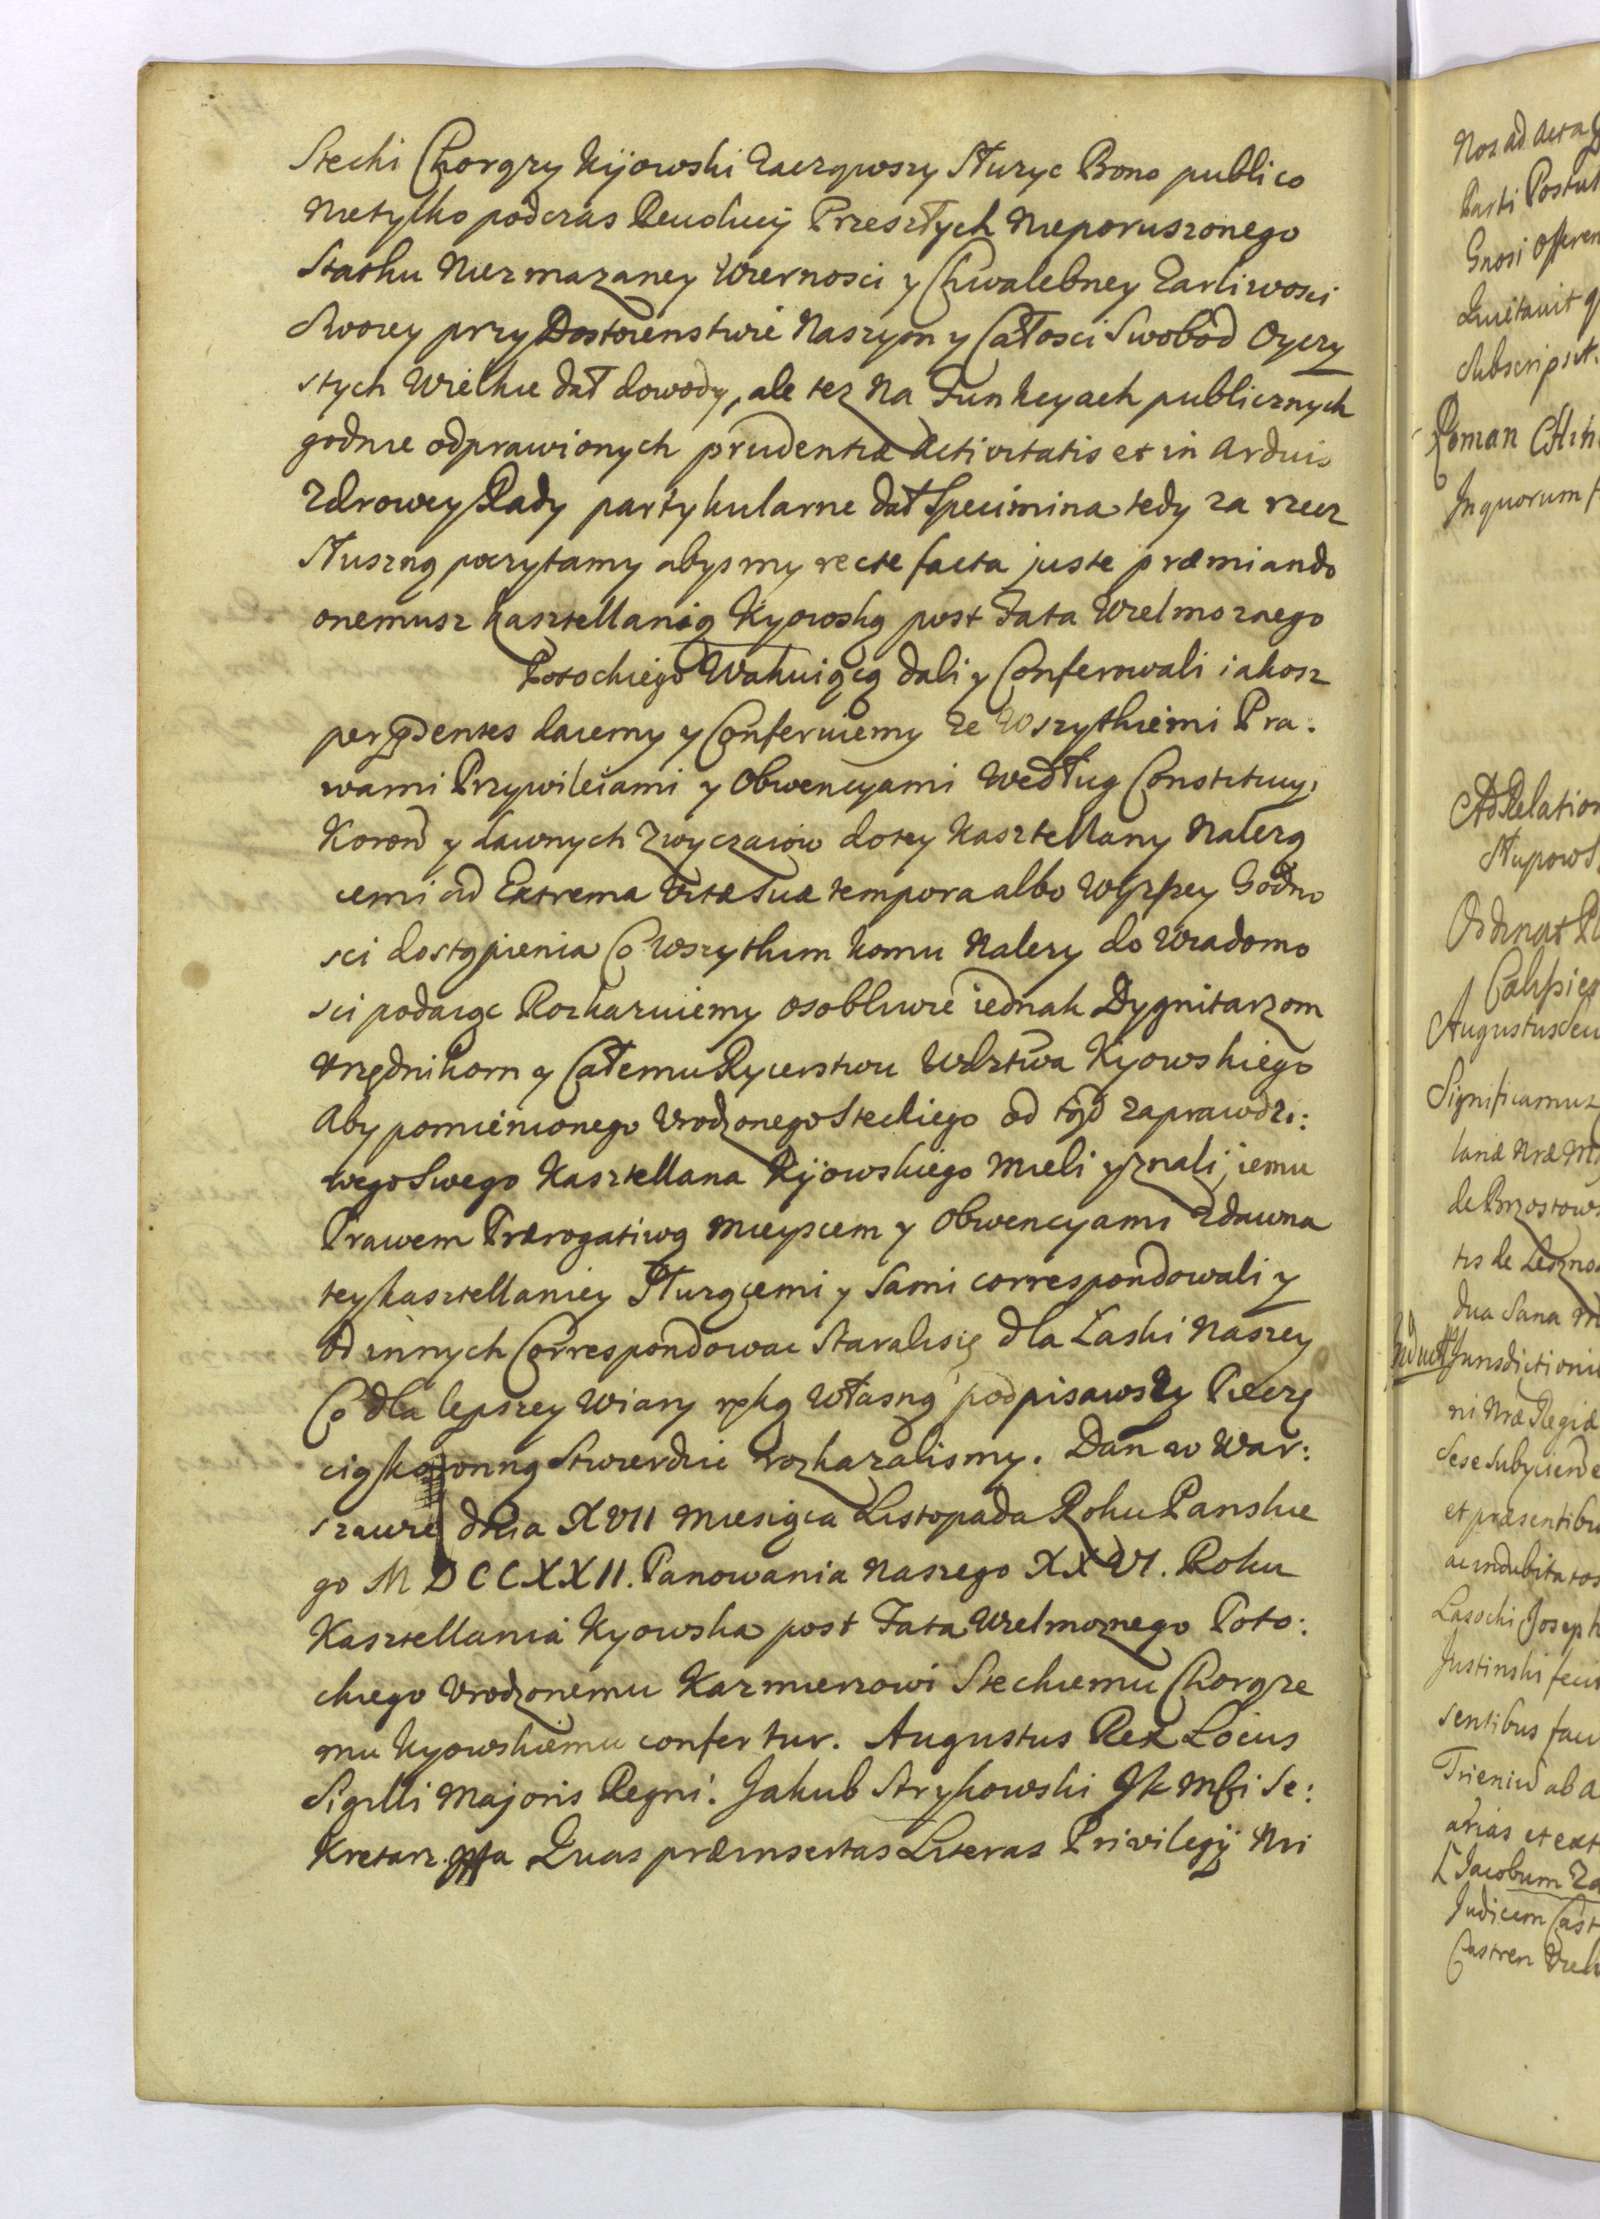 Stecki Chorąży Kijowski Zacząwszy Służyc Bono publico
Nietylko podczas Revolucij Przeszłych Nieporuszonego
Statku Niezmazaney Wiernosci y Chwalebney Zarliwosci
Swoiey przy Dostoienstwie Naszym y Całosci Swobod Oyczy
stych Wielkie dał dowody, ale tez Na Funkcyach publicznych
godnie odprawionych prudentiæ Activitatis et in Arduis
Zdrowey Rady partykularne dał Specimina tedy za rzecz
Słuszną poczytamy abysmy recte facta juste præmiando
onemusz kasztellanią Kyowską post Fata Wielmoznego
Potockiego Wakuiącą dali y Conferowali iakosz
per pñdentes daiemy y Conferuiemy ze Wszytkiemi Pra:
wami Przywileiami y Obwencyami Według Constitucyi
Koron y dawnych Zwyczaiow do tey Kasztellany Nalezą
cemi ad Extrema Vitæ Suæ tempora albo Wyzszey Godno
sci dostąpienia Co Wszytkim komu Nalezy do Wiadomo
sci podaiąc Rozkazuiemy osobliwie iednak Dygnitarzom
Urzędnikom y Całemu Rycerstwu Wdztwa Kyowskiego
Aby pomienionego Urodzonego Steckiego od tąd za prawdzi:
wego Swego Kasztellana Kijowskiego Mieli y znali, iemu
Prawem Prærogatiwą Mieyscem y Obwencyami Zdawna
tey kasztellaniey Słuzącemi y Sami correspondowali y
Od innych Correspondowac Staralisię dla Łaski Naszey
Co dla lepszey Wiary ręką Własną podpisawszy Pieczę
cią koronną Stwierdzic rozkazalismy. Dan w War:
szawie dnia XVII Miesiąca Listopada Roku Panskie
go MDCCXXII. Panowania Naszego XXVI. Roku
Kasztellania Kyowska post Fata Wielmoznego Poto:
ckiego Urodzonemu Kazmierzowi Steckiemu Chorąze
mu Kyowskiemu confertur. Augustus Rex Locus
Sigilli Majoris Regni. Jakub Strykowski JK Mści Se:
kretarz Quas præinsertas Literas Privilegij Nri
Nos ad Acta
Parti Postul
Gnosi Offeren
Quietavit q
Subscripsit.
Roman
In quorum f
Ad Relation
Słupows
Ordinat
Augustus
Significamus
laniæ Nræ
de Brzostows
tis de Leszno
dua Sana
Jurisdictioni
ni Nræ Regiæ
Sese Subijciend
et præsentibu
ac indubitatos
Lasocki Joseph
Justinski feci
sentibus fac
Trieniu ab A
arias et ext
Jacobum Za
Judicem Cast
Castren